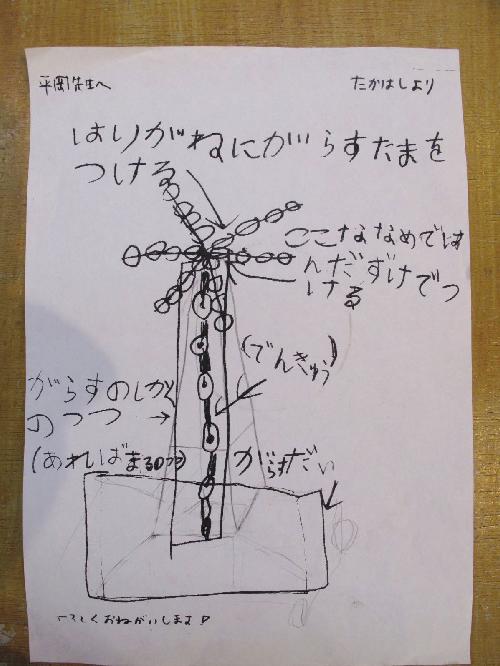 平岡先生へ
たかはしより
はりがねにがらすたまを
つける
ここななめではんだずけでつける
(でんきゅう)
がらすのしかくのつつ
(あればまるのつつ)
がらすだい
おねがいします!